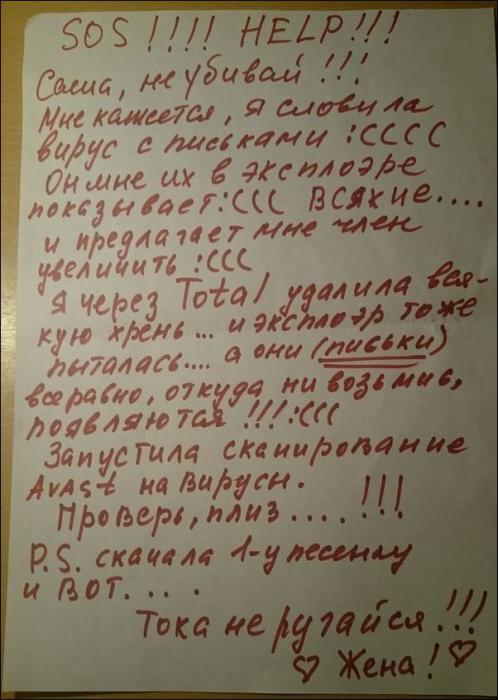 SOS !!!! HELP!!!
Саша, не убивай !!!
Мне кажется, я словила
вирус с письками :CCCC
Он мне их в эксплоэре
показывает:((( ВСЯКИЕ....
и предлагает мне член
увеличить :(((
Я через Total удалила вся-
кую хрень... и эксплоэр тоже
пыталась.... а они (письки)
всеравно, откуда ни возьмись,
появляются !!!:(((
Запустила сканирование
Avast на вирусы.
Проверь, плиз .... !!!
P.S. скачала 1-у песенку
и ВОТ. . . .
Тока не ругайся !!!
♡ Жена! ♡